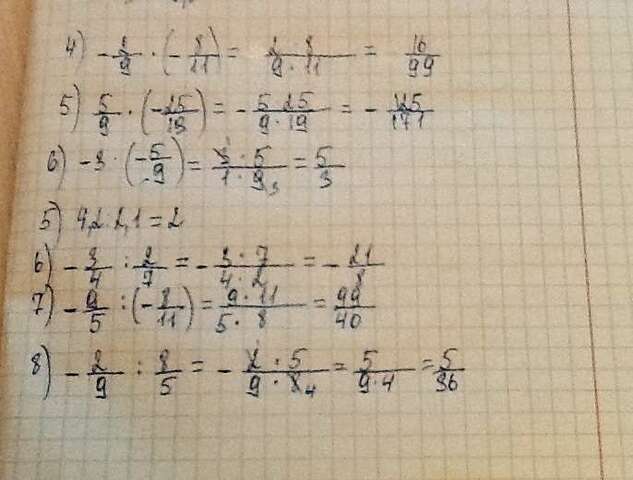 4) -2/9 · (-8/11) = 2 · 8/9 · 11 = 16/99
5) 5/9 · (-25/19) = - 5 · 25/9 · 19 = - 125/171
6) -3 · (-5/9) = 3 · 5/1 · 9 3 = 5/3
5) 4,2 : 2,1 = 2
6) -3/4 : 2/7 = - 3 · 7/4 · 2 = - 21/8
7) -9/5 : (-8/11) = 9 · 11/5 · 8 = 99/40
8) -2/9 : 8/5 = - 2 · 5/9 · 8 4 = 5/9 · 4 = 5/36